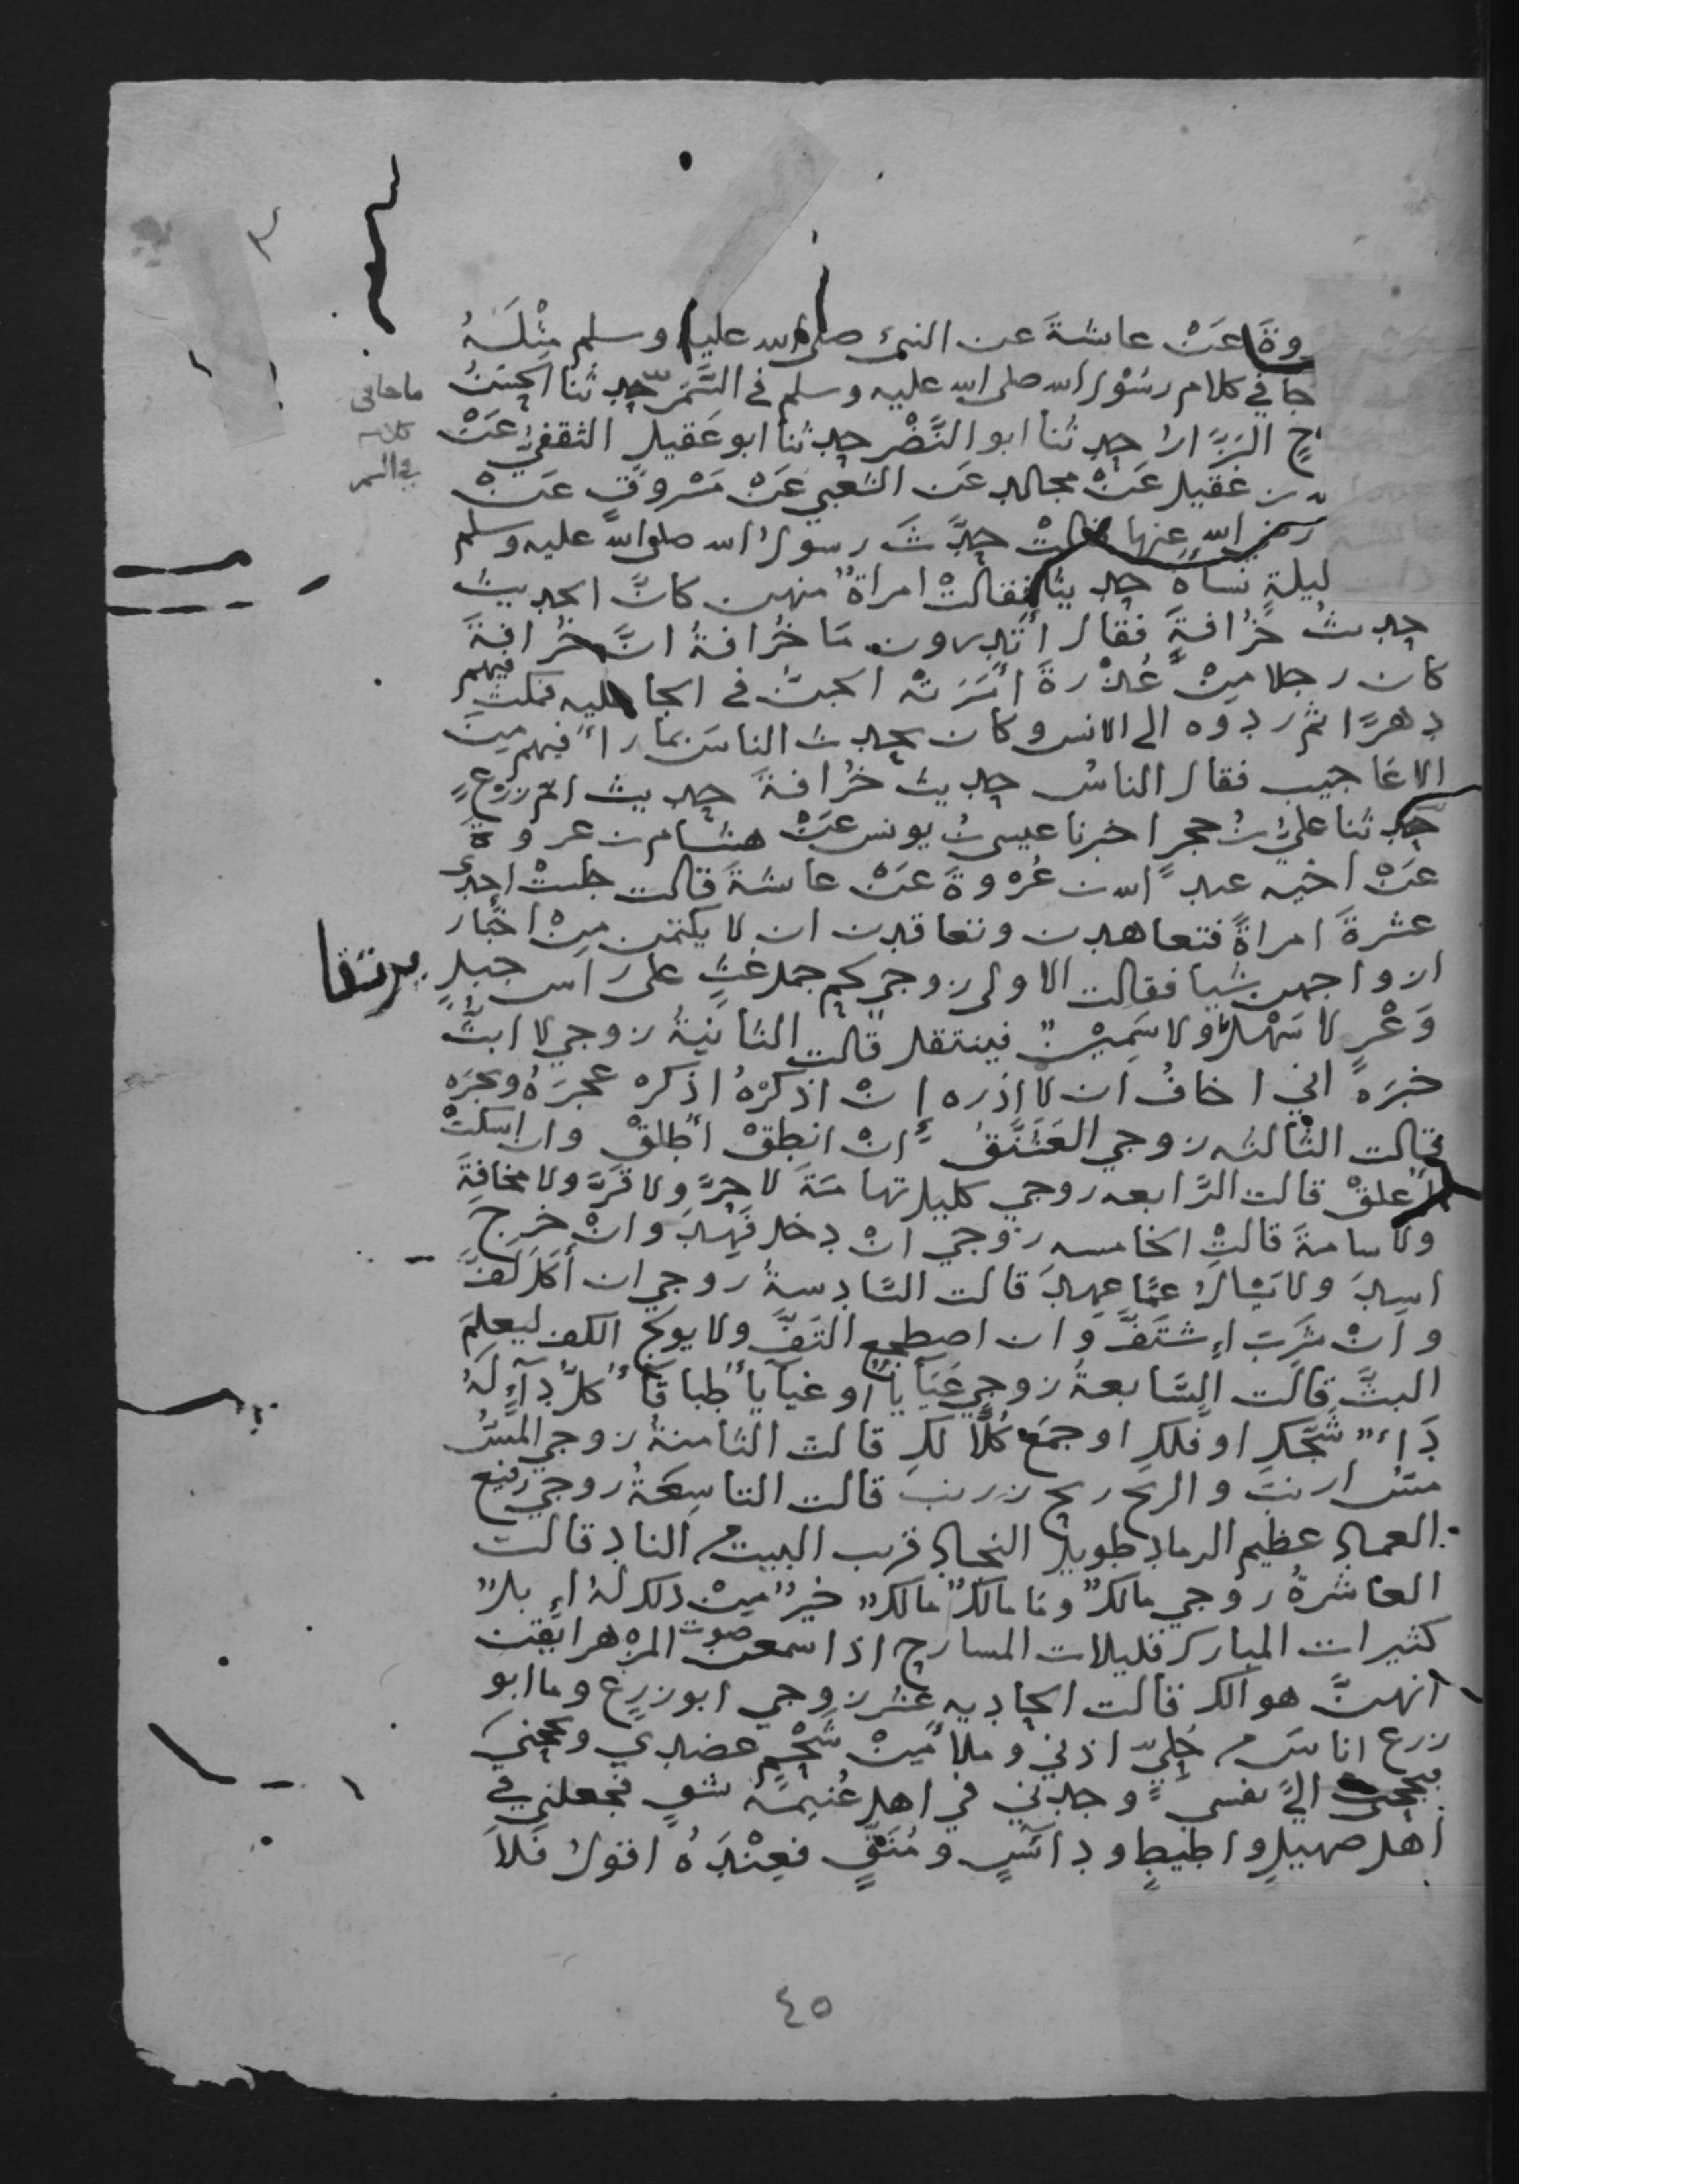 وةَ عَنْ عايشةَ عن النبي صلى الله عليه وسلم مثْلَهُ
جا في كلام رسُوْل الله صلى الله عليه وسلم في السَّمَر حدثنا الحسَنُ
ما جا في
كلام
في السمر
حٍ البزَّارُ حدثنا ابو النَّضْر حدثنا ابو عَقيل الثقفيُّ عَنْ
بن عَقيل عَنْ مجالد عَن الشعبي عَنْ مَسْروقٍ عَنْ
رضي الله عنها قالتْ حدَّثَ رسولُ الله صلى الله عليه وسلم
ليلةٍ نساهُ حديثا فقالتْ امراةٌ منهن كانَّ الحديثَ
حديثُ خُرَافةٍ فقال أتدرون مَا خُرَافةُ انَّ خُرَافةَ
كان رجلا مِنْ عُذْرَةَ أسَرَتْه الجنُّ في الجاهليه فمكث فيهم
دهرًا ثم ردوه الى الانس وكان يحدث الناسَ بما رأى فيهم مِنَ
الاعاجيب فقال الناسُ حديث خُرَافةَ حديث ام زرعٍ
حدثنا عليُّ بنُ حجرٍ اخبرنا عيسى بنُ يونس عَنْ هشام بن عروةَ
عَنْ اخيه عبد الله بن عُرْوةَ عَنْ عايشةَ قالت جلستْ احدى
عشرةَ امراةً فتعاهدن وتعاقدن ان لا يكتمن مِنْ اخبار
ازواجهن شيا فقالت الاولى زوجي لحم جمل غثٍ على راس جبلٍ
وَعْرٍ لا سَهْلٌ ولا سَمِيْنٌ فينتقل قالت الثانيةُ زوجي لا ابثُّ
خبَرَهُ اني اخافُ ان لا اذره إنْ اذكرْهُ اذكر عجرَهُ وبجرَه
قالت الثالثه زوجي العَشَنَّقُ إنْ انطقْ أُطلقْ وان اسكتْ
أُعلقْ قالت الرَّابعه زوجي كليل تهامَةَ لا حرَّ ولا قَرَّ ولا مخافةَ
ولا سامةَ قالتِ الخامسه زوجي انْ دخل فَهِدَ وانْ خرجَ
اسِدَ ولا يَسْالُ عمَّا عهِدَ قالت السَّادسةُ زوجي ان أكَلَ لَفَّ
وانْ شَرِبَ إشْتَفَّ وان اضطجع التَفَّ ولا يولج الكف ليعلمَ
البثَّ قالت السَّابعةُ زوجي عَيَآياُ أو غيآياُ طباقآُ كلُّ دآءٍ لَهُ
دَاءٌ شَجَّكِ او فلكِ او جمَعَ كُلًّا لكِ قالت الثامنةُ زوجي المسُّ
مسُّ ارنبَ والريح ريح زرنب قالت التاسِعَةُ زوجي رفيع
العماد عظيم الرماد طويل النجاد قريب البيت من الناد قالت
العاشرةُ زوجي مالكٌ وما مالكٌ مالكٌ خيرٌ مِنْ ذلك لهُ إبلٌ
كثيرات المبارك قليلات المسارح اذا سمعن صوت المِزْهر ايقن
انهنَّ هوالك قالت الحاديه عشر زوجي ابو زرع وما ابو
زرع اناسَ من حُليّ اذنيَّ وملأ مِنْ شَحْمٍ عضديَّ وبجحني
فبجحت اليَّ نفسى وجدني في اهل غُنيمَةٍ بشقٍ فجعلني في
اهل صهيلٍ واطيطٍ ودآئسٍ ومُنَقٍّ فعِنْدَهُ اقولُ فَلاَ
٤٥